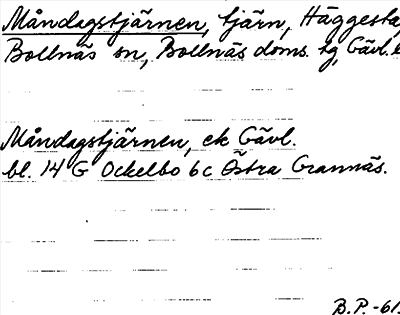 Måndagstjärnen, tjärn, Häggesta,
Bollnäs sn, Bollnäs doms. tg, Gävl. l
Måndagstjärnen, ek Gävl.
bl. 14 G Ockelbo 6c Östra Grannäs.
B.P.-61.